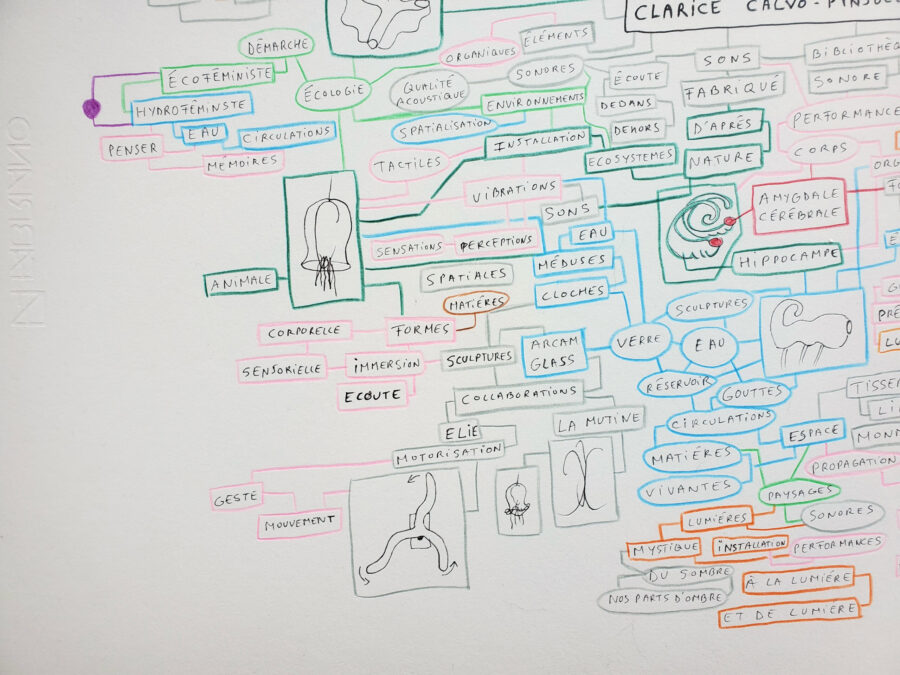 CLARICE
ÉLÉMENTS
DÉMARCHE
ORGANIQUES
SONS
SONORE
ÉCOFÉMINISTE
ÉCOLOGIE
QUALITÉ
ACOUSTIQUE
SONORES
ÉCOUTE
FABRIQUÉ
HYDROFÉMINSTE
ENVIRONNEMENTS
DEDANS
PERFORMANCE
EAU
CIRCULATIONS
SPATIALISATION
DEHORS
D'APRÉS
PENSER
MÉMOIRES
TACTILES
INSTALLATION
ECOSYSTEMES
NATURE
CORPS
VIBRATIONS
SONS
AMYGDALE
CÉRÉBRALE
SENSATIONS
PERCEPTIONS
EAU
MÉDUSES
HIPPOCAMPE
ANIMALE
SPATIALES
MATIÉRES
CLOCHES
SCULPTURES
CORPORELLE
FORMES
VERRE
EAU
SENSORIELLE
IMMERSION
SCULPTURES
ARCAM
GLASS
ECOUTE
RÉSERVOIR
GOUTTES
COLLABORATIONS
ELIE
LA MUTINE
CIRCULATIONS
ESPACE
MOTORISATION
MATIÉRES
PROPAGATION
GESTE
VIVANTES
PAYSAGES
MOUVEMENT
LUMIÉRES
SONORES
MYSTIQUE
INSTALLATION
PERFORMANCES
DU SOMBRE
À LA LUMIÉRE
NOS PARTS D'OMBRE
ET DE LUMIÈRE